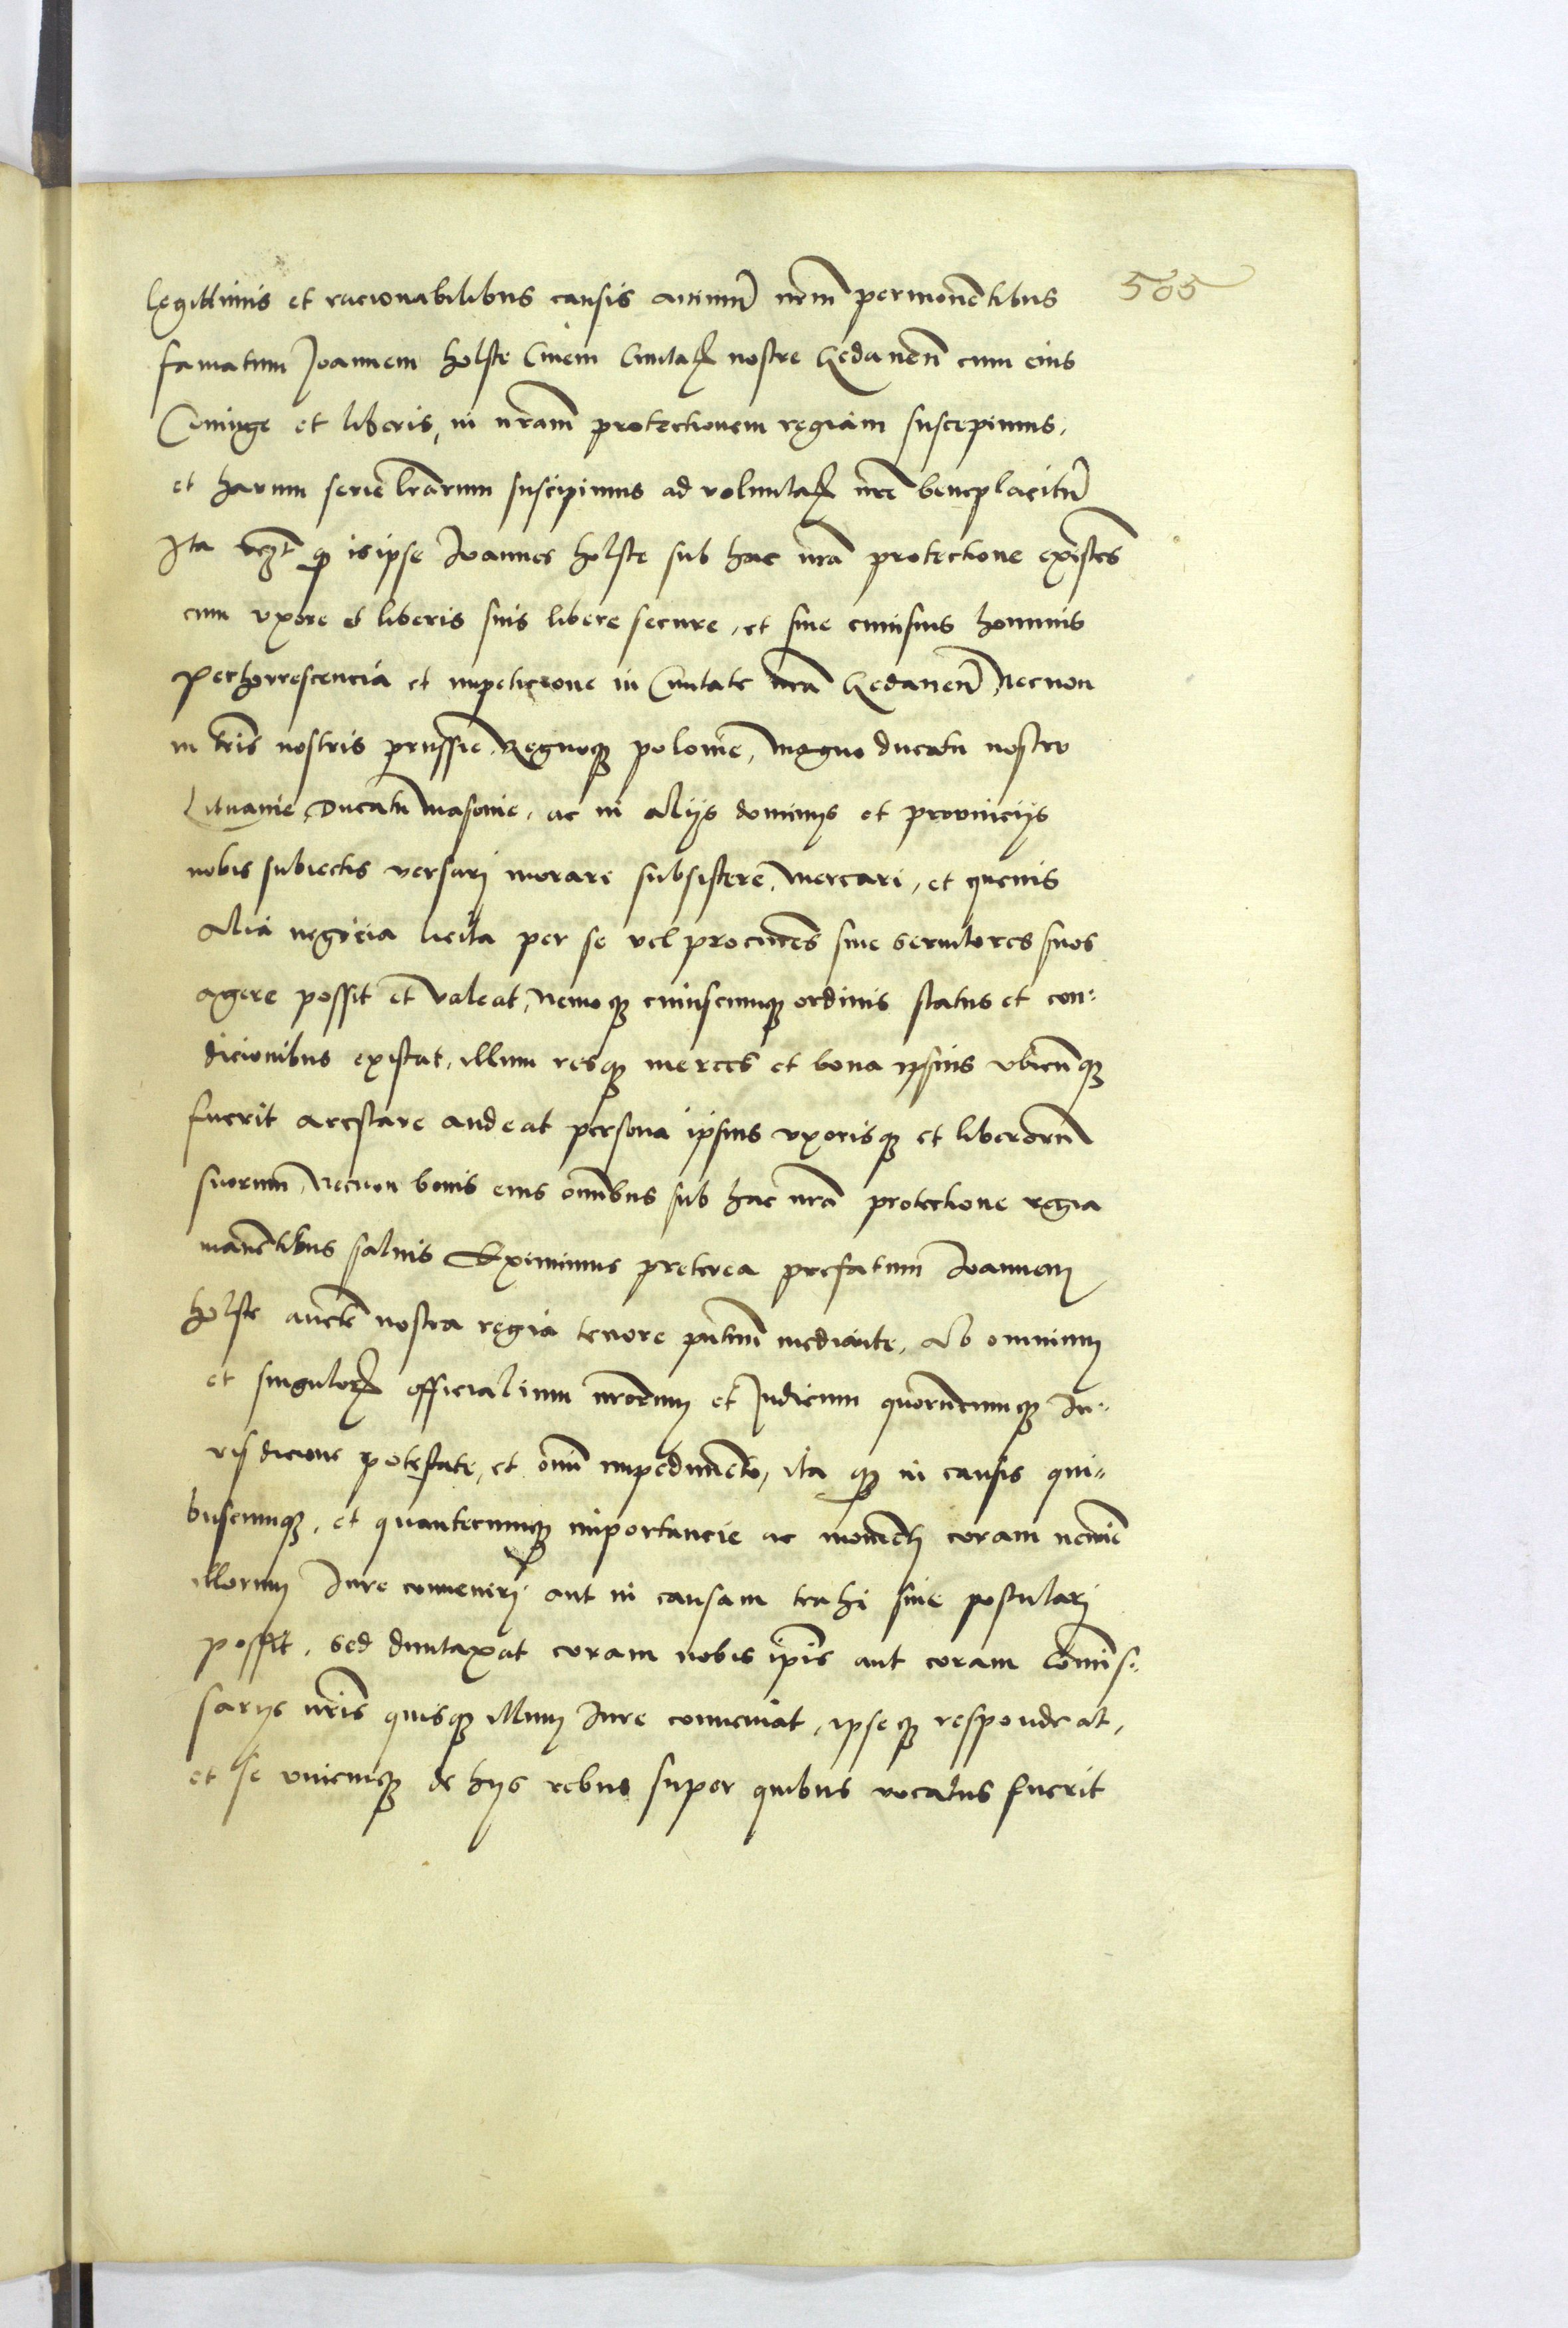 505
legittimis et racionabilibus causis animū nr̄m permonētibus
famatum Joannem holste Ciuem Ciuitatꝭ nostre Gedanen̄ cum eius
Coniuge et liberis, in nr̄am protectionem regiam suscepimus,
et harum serie lr̄arum suscipimus ad voluntatꝭ nr̄e beneplacitū
Ita vꝫt ꝙ is ipse Joannes holste sub hac nr̄a protectione existēs
cum vxore et liberis suis libere secure, et sine cuiusuis hominis
perhorrescencia et impeticione in Ciuitate nr̄a Gedanen̄, Necnon
in tr̄is nostris prussie, Regnoqꝫ polonie, magno ducatu nostro
Lituanie, Ducatu masouie, ac in alijs dominijs et prouincijs
nobis subiectis versari morari subsistere, mercari, et queuis
alia negocia licita per se vel procur̄es siue seruitores suos
agere possit et valeat, Nemoqꝫ cuiuscumqꝫ ordinis status et con⸗
dicionibus existat, illum resqꝫ merces et bona ipsius vbicūqꝫ
fuerit arestare audeat persona ipsius vxorisqꝫ et liberorū
suorum, Necnon bonis eius om̄ibus sub hac nr̄a protectione regia
manētibus saluis Eximimus preterea prefatum Joannem
holste auctē nostra regia tenore pn̄tium mediante, Ab omnium
et singulorꝝ officialium nr̄orum et Judicum quorūcumqꝫ Iu⸗
risdicione potestate, et om̄i impedimēto, ita ꝙ in causis qui⸗
buscumqꝫ, et quantecumqꝫ importancie ac momēti coram nemīe
illorum Iure conueniri aut in causam trahi siue postulari
possit, sed duntaxat coram nobis ip̄is aut coram Com̄is⸗
sarijs nr̄is quisqꝫ illum Iure conueniat, ipseqꝫ respondeat,
et se vnicuiqꝫ de hijs rebus super quibus vocatus fuerit